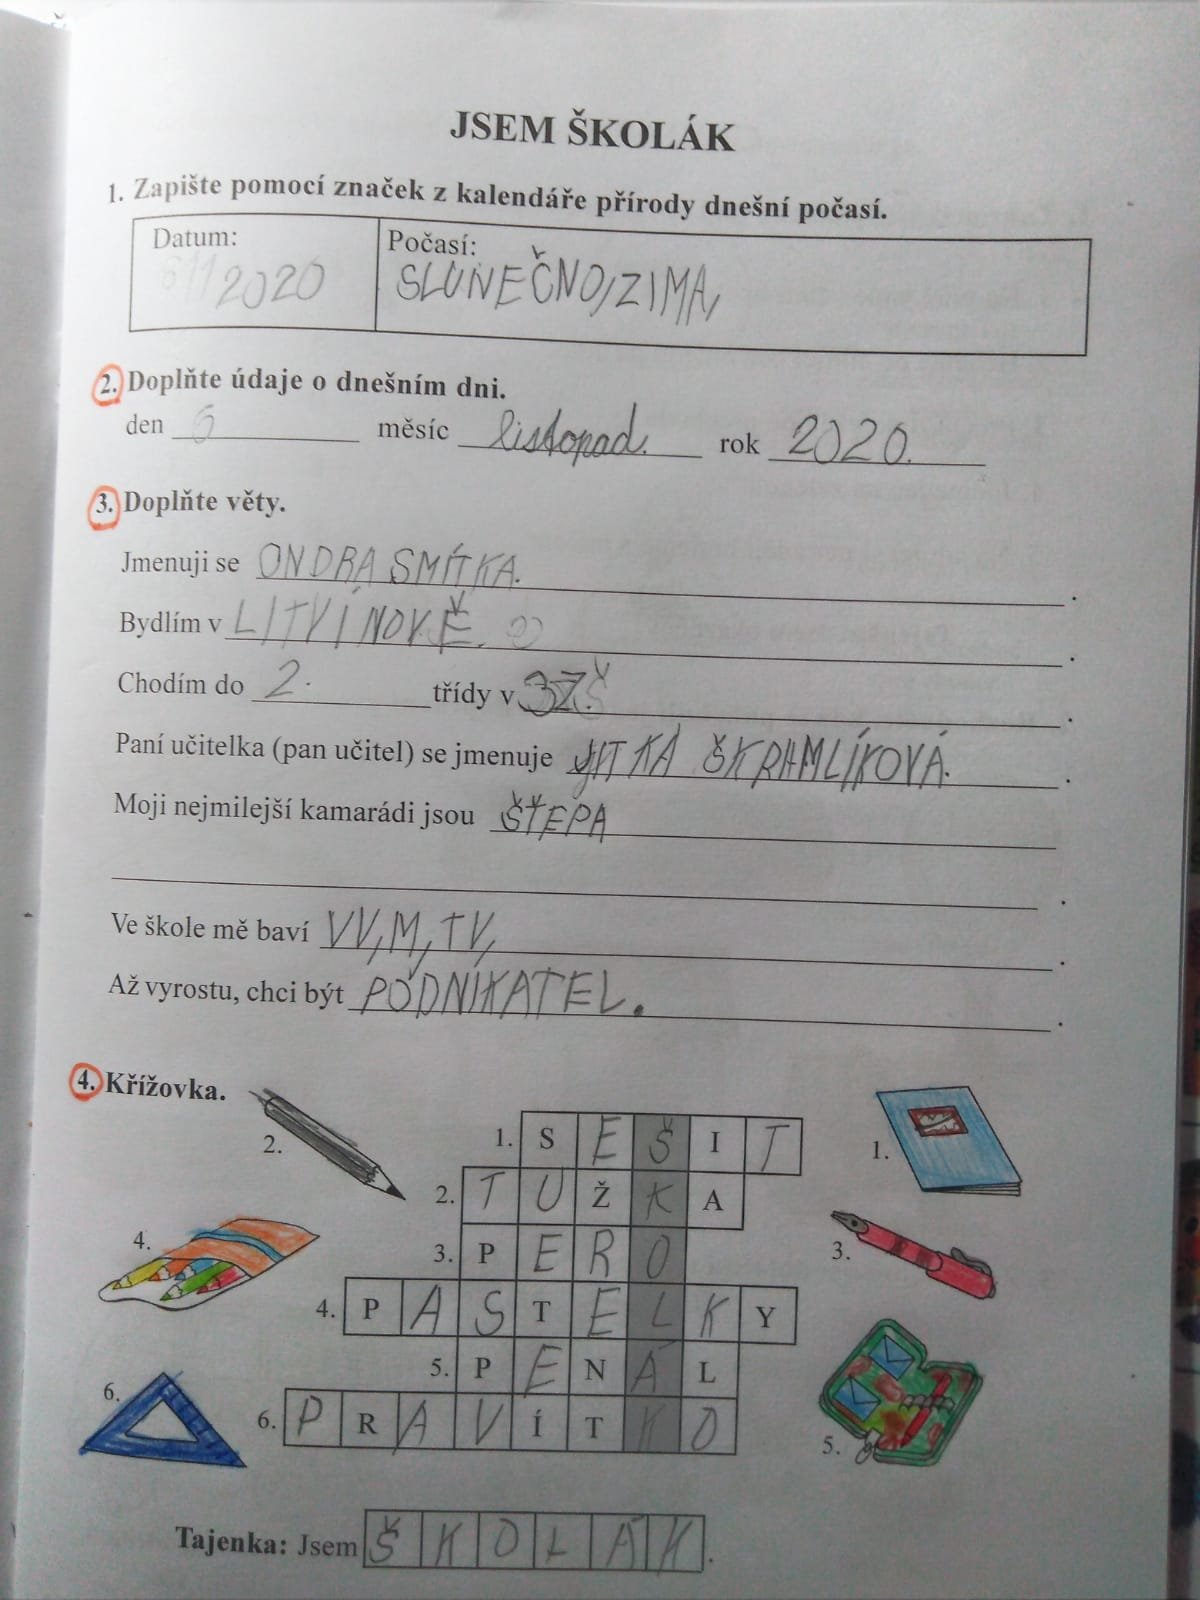 JSEM ŠKOLÁK
1. Zapište pomocí značek z kalendáře přírody dnešní počasí.
Datum: Počasí:
2020 SLUNEČNO, ZIMA,
2. Doplňte údaje o dnešním dni.
den 6 měsíc listopad. rok 2020.
3. Doplňte věty.
Jmenuji se ONDRA SMÍTKA.
Bydlím v LITVÍNOVĚ.
Chodím do 2. třídy v ZŠ.
Paní učitelka (pan učitel) se jmenuje JITKA ŠKRAMLÍKOVÁ.
Moji nejmilejší kamarádi jsou ŠTĚPA
Ve škole mě baví VV, M, TV,
Až vyrostu, chci být PODNIKATEL.
4. Křížovka.
2. 1. S E Š I T 1.
2. T U Ž K A
4. 3. P E R O 3.
4. P A S T E L K Y
5. P E N Á L
6. 6. P R A V Í T K O 5.
Tajenka: Jsem Š K O L Á K.